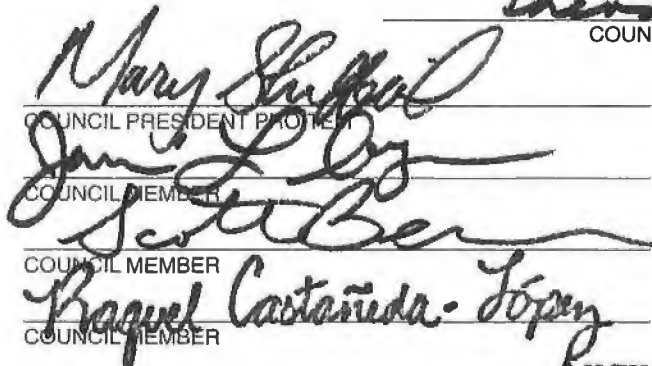 COUN
Mary Sheffield
COUNCIL PRESIDENT PRO TEM
COUNCIL MEMBER
Scott Ben
COUNCIL MEMBER
Raquel Castañeda-López
COUNCIL MEMBER